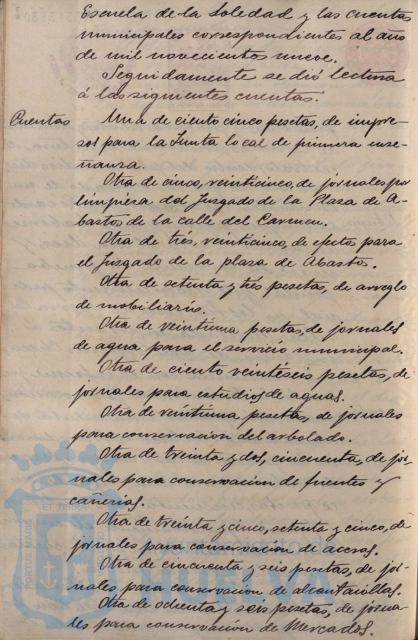 Escuela de la Soledad y las cuentas
municipales correspondientes al año
de mil novecientos nueve.
Seguidamente se dió lectura
á las siguientes cuentas.
Cuentas Una de ciento cinco pesetas, de impre-
sos para la Junta local de primera ense-
ñanza.
Otra de cinco, veinticinco, de jornales por
limpieza del Juzgado de la Plaza de A-
bastos de la calle del Carmen.
Otra de trés, veinticinco, de efectos para
el Juzgado de la plaza de Abastos.
Otra de setenta y trés pesetas, de arreglo
de mobiliario.
Otra de veintiuna pesetas, de jornales
de agua para el servicio municipal.
Otra de ciento veintéseis pesetas, de
jornales para estudios de aguas.
Otra de veintiuna pesetas, de jornales
para conservacion del arbolado.
Otra de treinta y dos, cincuenta, de jor-
nales para conservacion de fuentes y
cañerias.
Otra de treinta y cinco, setenta y cinco, de
jornales para conservacion de aceras.
Otra de cincuenta y seis pesetas, de jor-
nales para conservacion, de alcantarillas.
Otra de ochenta y seis pesetas, de jorna-
les para conservacion de Mercados.
PORTUS MARIS
ET TERRAE
HUELVA